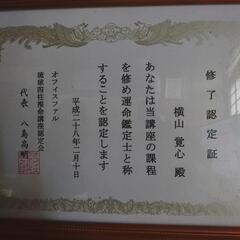 修了認定証
横山 覚心 殿
あなたは当講座の課程
を修め運命鑑定士と称
することを認定します
平成二十八年二月十日
オフィスファル
琉球四柱推命講座認定会
代表 八島高明